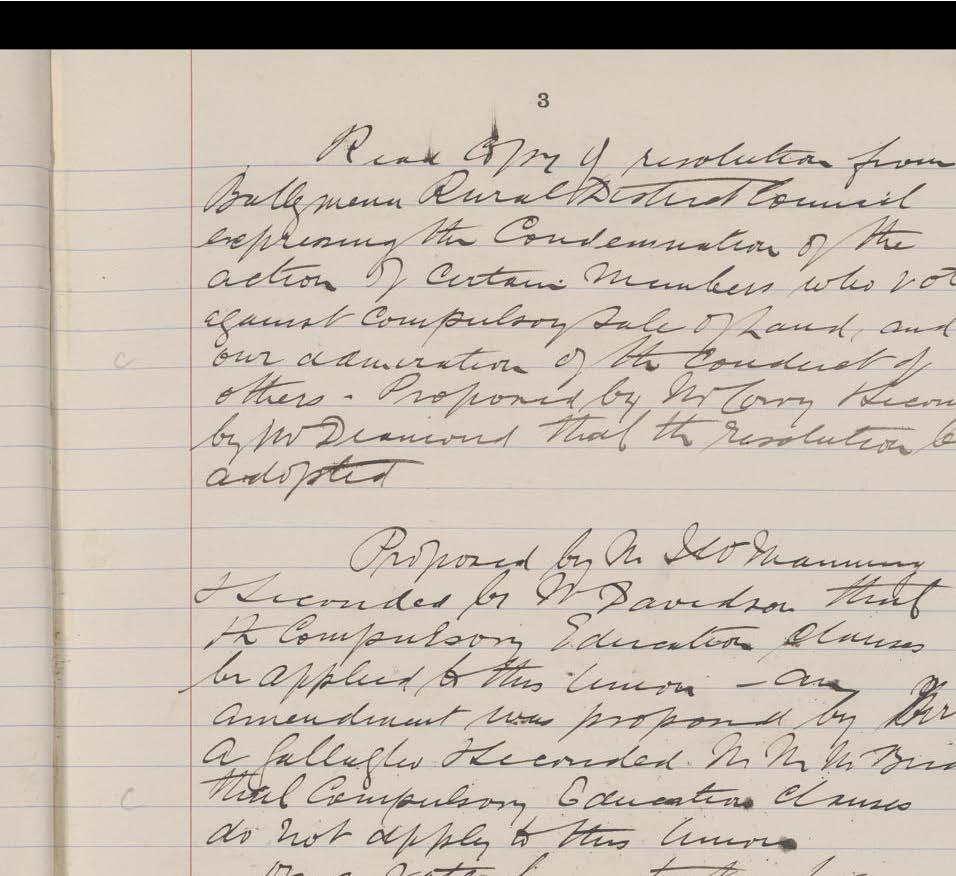 3
Read Copy of resolution from
Ballymena Rural District Council
expressing the Condemnation of the
action of certain Members who vot
against Compulsory Sale of Land, and
our admiration of the Conduct of
others - Proposed by Mr Cory & Secon
by Mr Diamond that the resolution be
adopted
Proposed by Mr Manning
& Seconded by Mr Davidson that
the Compulsory Education Clauses
be applied to this Union - an
amendment was proposed by Mr
A Gallagher & Seconded
that Compulsory Education Clauses
do not apply to this Union
On a vote